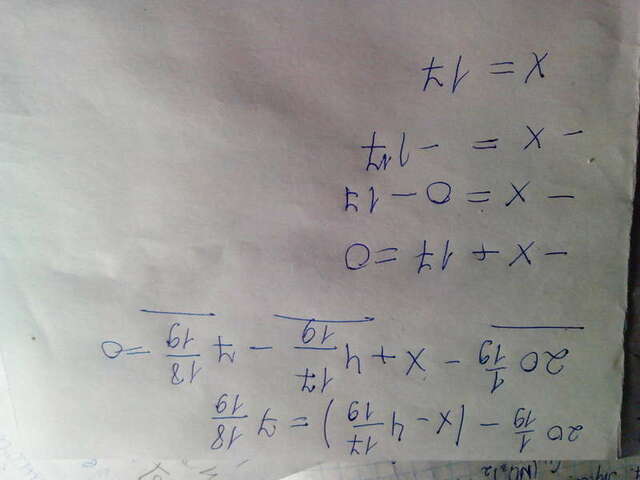 20 1/19 - (x - 4 17/19) = 7 18/19
20 1/19 - x + 4 17/19 - 7 18/19 = 0
- x + 17 = 0
- x = 0 - 17
- x = - 17
x = 17